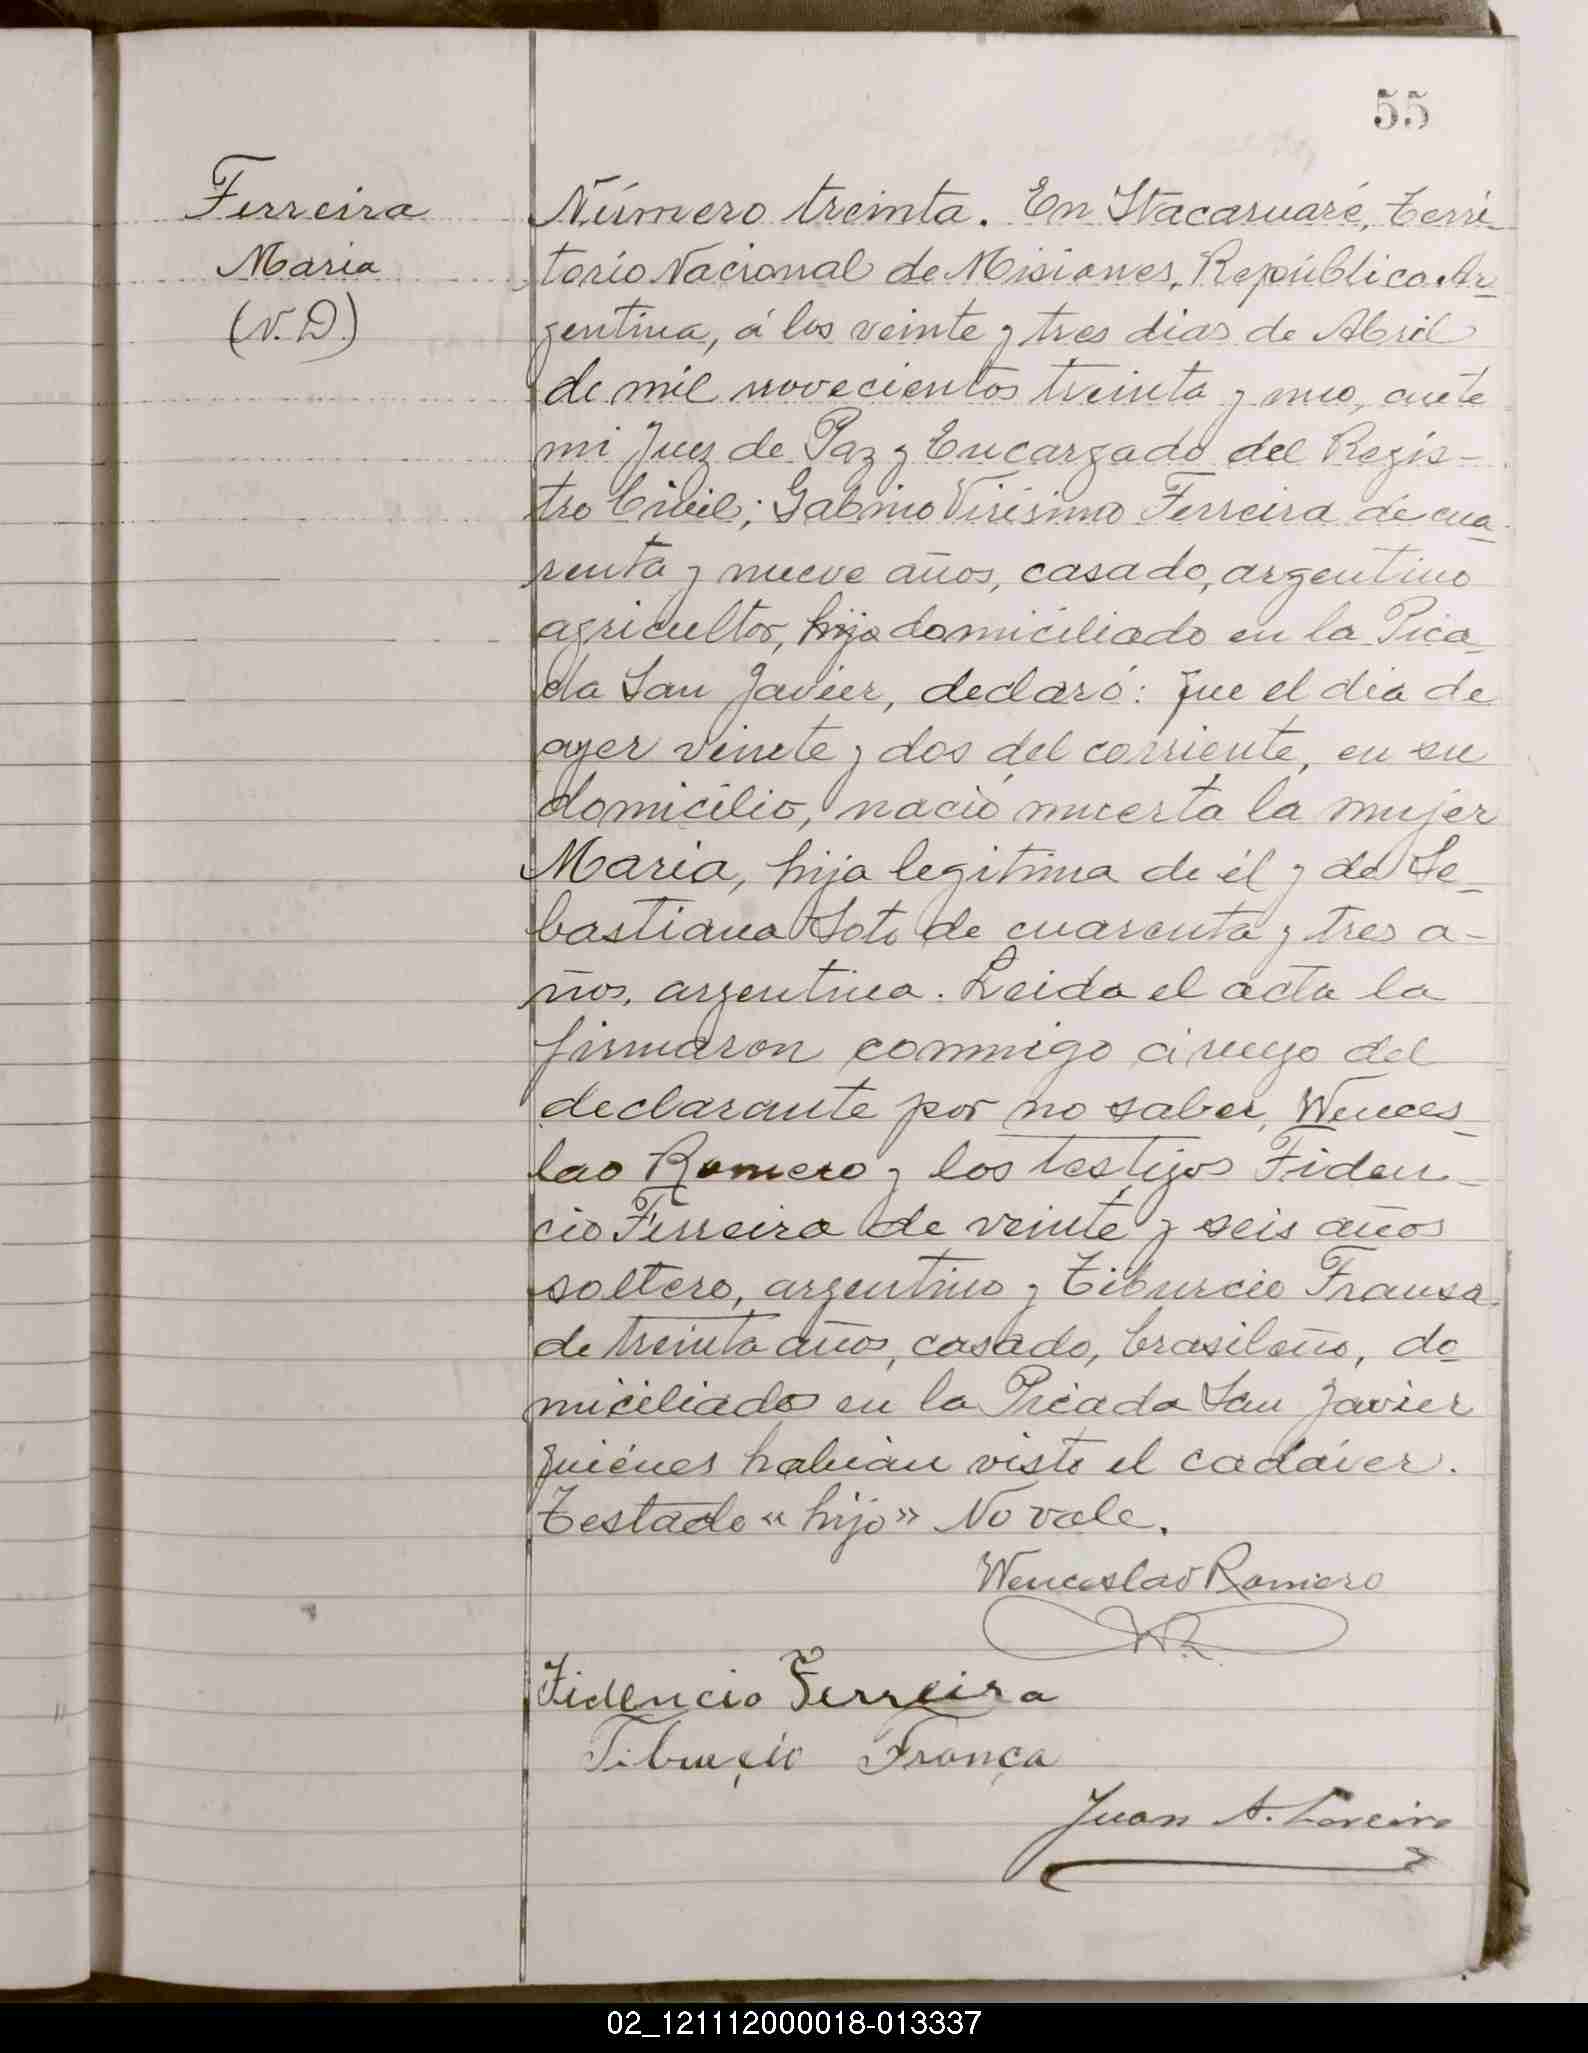 55
Ferreira
Maria
(N.D.)
Número treinta. En Itacaruaré, Terri-
torio Nacional de Misiones, República Ar-
gentina, á los veinte y tres dias de Abril
de mil novecientos treinta y uno, ante
mi Juez de Paz y Encargado del Regis-
tro Civil; Gabino Virisimo Ferreira de cua-
renta y nueve años, casado, argentino
agricultor, hijo domiciliado en la Pica-
da San Javier, declaró: que el dia de
ayer veinte y dos del corriente, en su
domicilio, nació muerta la mujer
Maria, hija legitima de él y de Se-
bastiana Soto de cuarenta y tres a-
ños, argentina. Leida el acta la
firmaron conmigo á ruego del
declarante por no saber, Wences-
lao Romero y los testigos Fiden-
cio Ferreira de veinte y seis años
soltero, argentino y Tiburcio Fransa
de treinta años, casado, brasileño, do-
miciliados en la Picada San Javier
quiénes habian visto el cadáver.
Testado "hijo" No vale.
Wenceslao Romero
WR
Fidencio Ferreira
Tiburçio França
Juan A.
02_121112000018-013337